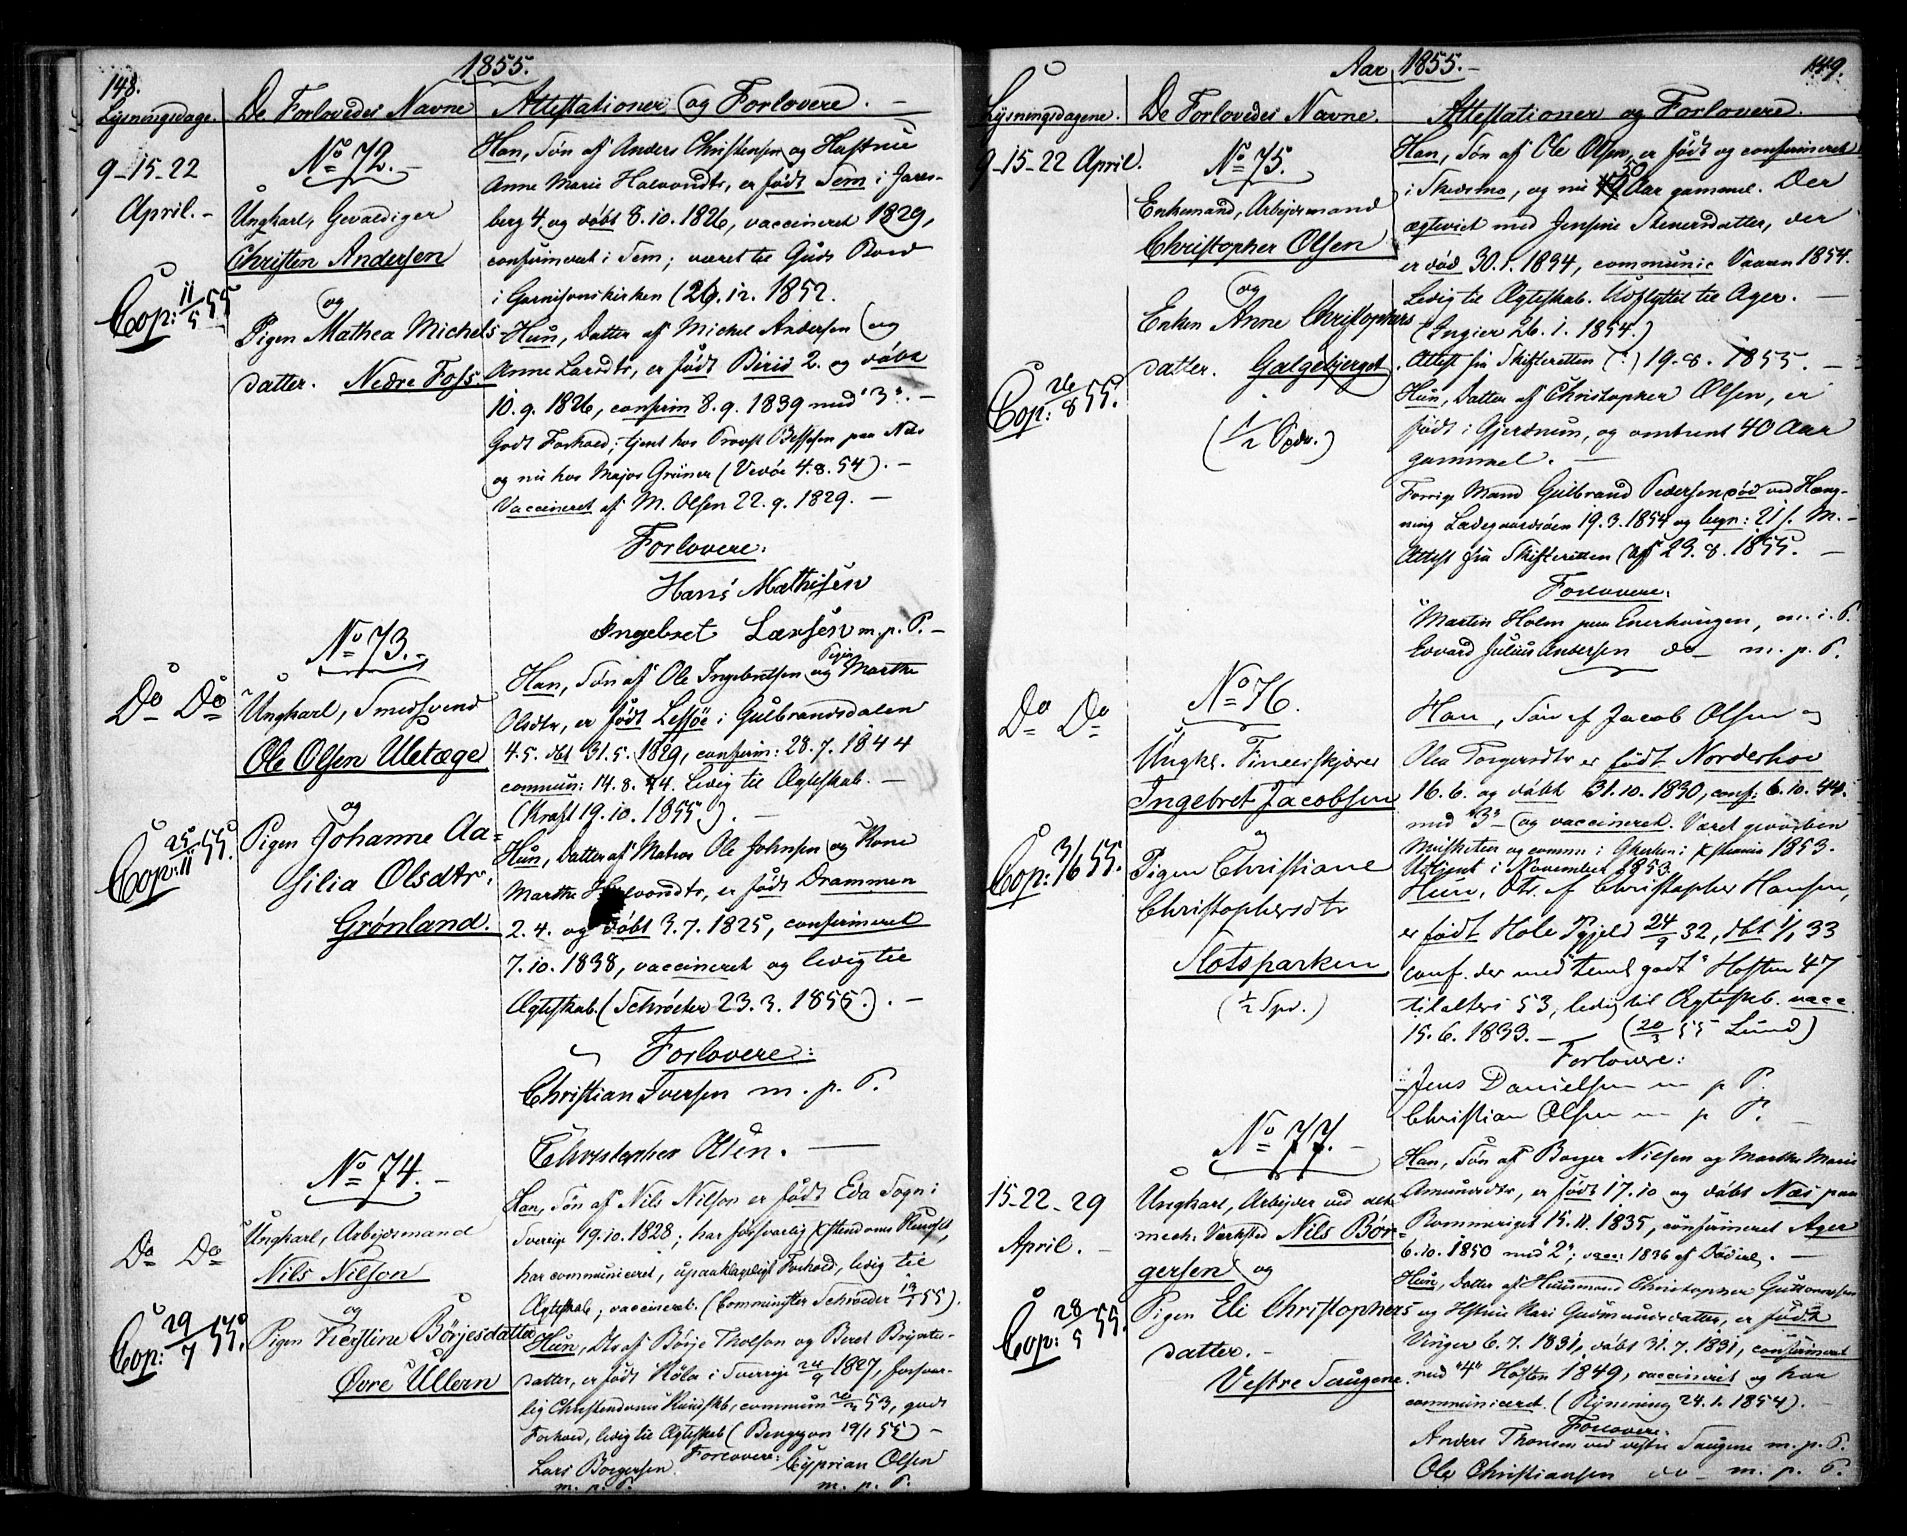 148.
1855.
Lysningsdage.
De Forlovedes Navne
Attestationer og Forlovere. —
9-15-22
April. -
No 72. -
Ungkarl, Gevaldiger
Christen Andersen
og
Pigen Mathea Michels-
datter. Nedre Foss.
Cop: 11/5 55
Han, Søn af Anders Christensen og Hustrue
Anne Marie Halvordtr, er født Sem i Jarls-
berg 4. og døbt 8.10.1826, vaccineret 1829,
confirmeret i Sem; været til Guds Bord
i Garnisonskirken (26.12.1852.
Hun, Datter af Michel Andersen (og
Anne Larsdtr, er født Birid 2. og døbt
10.9.1826, confirm 8.9.1839 med "3". -
Godt Forhold; tjent hos Provst Bessesen paa Næs
og nu hos Major Grüner (Vedøe 4.8.54). -
Vaccineret af M. Olsen 22.9.1829. -
Forlovere:
Hans Mathisen
Ingebret Larsen m.p.P. -
Do Do
No 73. -
Ungkarl, Smedsvend
Ole Olsen Uletæge
og
Pigen Johanne Aa-
silia Olsdtr.
Grønland.
Cop: 25/11 55.
Han, Søn af Ole Ingebretsen og Pigen Marthe
Olsdtr, er født Lessøe i Gulbrandsdalen
4.5. dbt 31.5. 1829, confirm: 28.7.1844
commun: 14.8.44. ledig til Ægteskab. -
(Kraft 19.10.1855). -
Hun, Datter af Matros Ole Johnsen og Kone
Marthe Halvordtr, er født Drammen
2.4. og døbt 3.7.1825, confirmeret
7.10.1838, vaccineret og ledig til
Ægteskab. (Schrøder 23.3.1855). -
Forlovere:
Christian Iversen m. p. P.
Christopher Olsen. —
Do Do
No 74. -
Ungkarl, Arbejdsmand
Nils Nilson
og
Pigen Kerstine Börjesdatter
Øvre Ullern
Cop: 29/7 55.
Han, Søn af Nils Nilson er født Eda Sogn i
Sverrig 19.10.1828; har forsvarlig Xstendoms Kundsk,
har communiceret, upaaklageligt Forhold, ledig til
Ægteskab; vaccineret. (Comminister Schrøeder 13/1 55).
Hun, Dtr af Börje Tholson og Beret Bryntes-
datter, er født Köla i Sverrige 24/9 1827, forsvar-
lig Christendoms Kundskb, commun 20/2 53, godt
Forhold, ledig til Ægteskab ( 19/1 55) -
Forlovere:
Lars Borgersen. Cyprian Olsen
m. p. P. m. p. P.
Aar 1855. -
149.
Lysningsdagene.
De Forlovedes Navne.
Attestationer og Forlovere.
9-15-22 April.
No 75.
Enkemand, Arbejdsmand
Christopher Olsen
og
Enken Anne Christophers
datter. Galgebjerget
(1/2 Spdr.)
Cop: 26/8 55.
Han, Søn af Ole Olsen, er født og confirmeret
i Skedsmo, og nu 30 Aar gammel. Der
ægteviet med Jensine Stenersdatter, der
er død 30.1.1854, communic Vaaren 1854.
Ledig til Ægteskab. Udflyttet til Ager. —
(Ingier 26.1.1854.)
Attest fra Skifteretten (:) 19.8.1855. -
Hun, Datter af Christopher Olsen, er
født i Gjerdrum, og omtrent 40 Aar
gammel. —
Forrige Mand Gulbrand Pedersen død ved Hæng-
ning Ladegaardsøen 19.3.1854 og begr: 21 s. M. -
Attest fra Skifteretten af 23.8.1855. -
Forlovere:
Martin Holm paa Enerhaugen, m. i. P.
Edvard Julius Andersen do- m. p. P.
Do Do
No 76.
Ungkl. Fineerskjærer
Ingebret Jacobsen
og
Pigen Christiane
Christophersdtr
Slotsparken
(1/2 Spd.)
Cop: 3/6 55.
Han, Søn af Jacob Olsen og
Olia Torgersdtr er født Norderhov
16.6. og døbt 31.10.1830, conf: 6.10.44.
med "3" og vaccineret. Været geworben
Musketeer og commu: i Gkirken i Xstiania 1853.
Udtjent i November 1853.
Hun, Dtr. af Christopher Hansen,
er født Hole Pgjeld 24/9 32, dbt 1/1 33
conf. der med "teml godt" Høsten 47
tilalters 53, ledig til Ægteskb. vacc
15.6.1833. - (20/3 55 Lund)
Forlovere:
Jens Danielsen m p P.
Christian Olsen m p P. -
15-22-29
April. -
No 77. -
Ungkarl, Arbejder ved det
mech: Værksted Nils Bør-
gersen og
Pigen Eli Christophers
datter. -
Vestre Saugene.
Cop: 28/5 55.
Han, Søn af Borger Nilsen og Marthe Marie
Amundsdtr, er født 17.10 og døbt Næs paa
Rommerriget 15.11.1835, confirmeret Ager
6.10.1850 med "2"; vacc: 1836 af Døderl. -
Hun, Datter af Huusmand Christopher Guttormsen
og Hstrue Kari Gudmundsdatter, er født
Vinger 6.7.1831, døbt 31.7.1831, confirmeret
med "4" Høsten 1849, vaccineret og har
communiceret. (Rynning 24.1.1854). -
Forlovere:
Anders Thomsen ved vestre Saugene m. p. P.
Ole Christiansen do- m. p. P.